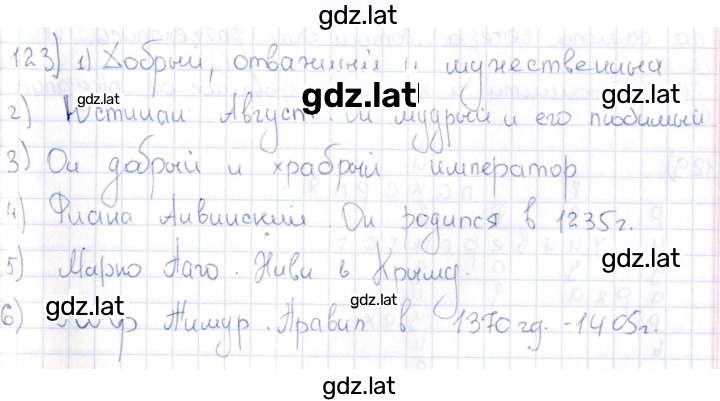 gdz.lat
123) 1) Храбрый, отважный и мужественный
gdz.lat gdz.lat gdz.lat
2) Юстиниан Август. Он мудрый и его любимый
3) Он добрый и храбрый император
4) Фиана Аивинский. Он родился в 1235г.
gdz.lat
5) Марко Паго. Живи в Крыму.
gdz.lat gdz.lat
6) Тимур. Правил в 1370гд. -1405г.
gdz.lat